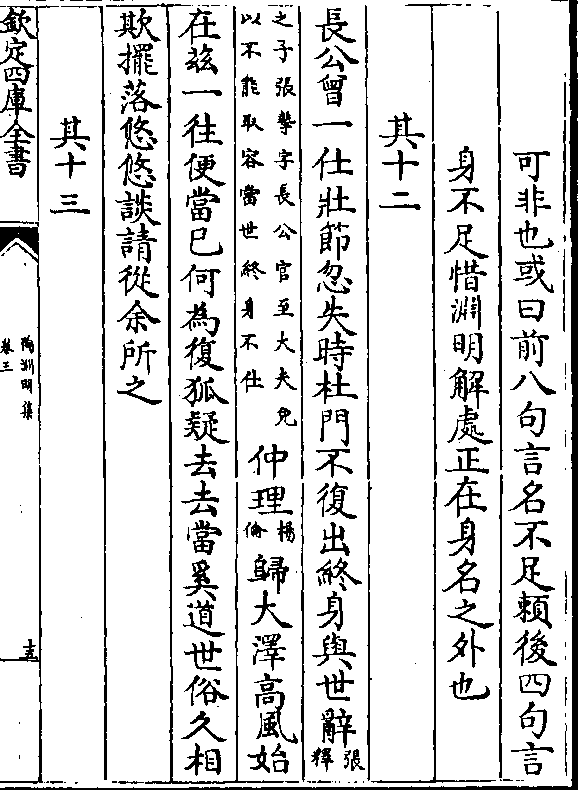 可非也或曰前八句言名不足賴後四句言
身不足惜淵明解處正在身名之外也
其十二
長公曾一仕壯節忽失時杜門不復出終身與世辭張釋
之子張摯字長公官至大夫免
以不能取容當世終身不仕
仲理楊倫歸大澤高風始
在茲一往便當已何為復狐疑去去當奚道世俗久相
欺擺落悠悠談請從余所之
其十三
欽定四庫全書
陶淵明集
卷三